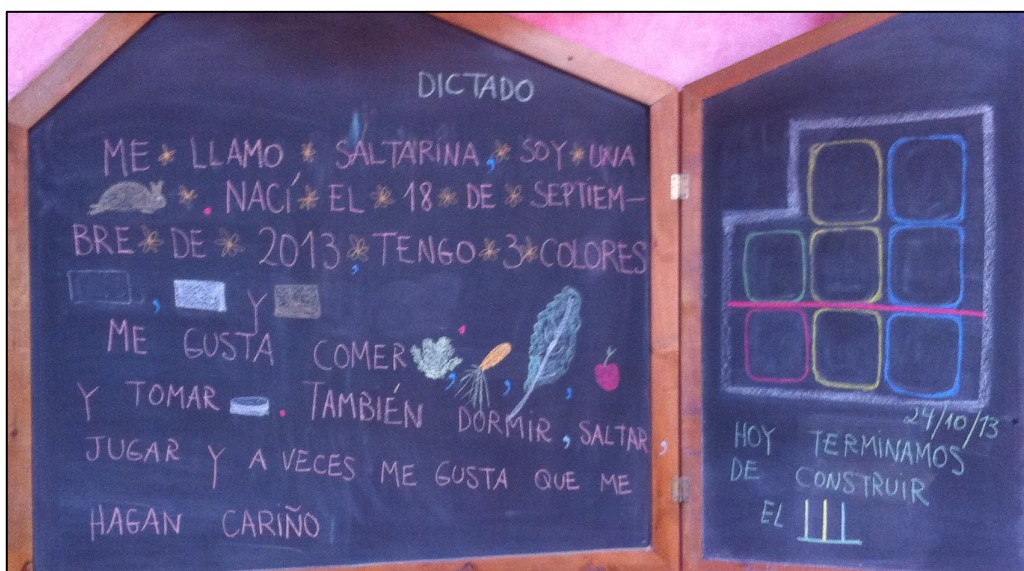 DICTADO
ME LLAMO SALTARINA, SOY UNA
. NACÍ EL 18 DE SEPTIEM-
BRE DE 2013, TENGO 3 COLORES
, Y
ME GUSTA COMER , , , .
Y TOMAR . TAMBIÉN DORMIR, SALTAR,
JUGAR Y A VECES ME GUSTA QUE ME
HAGAN CARIÑO
24/10/13
HOY TERMINAMOS
DE CONSTRUIR
EL